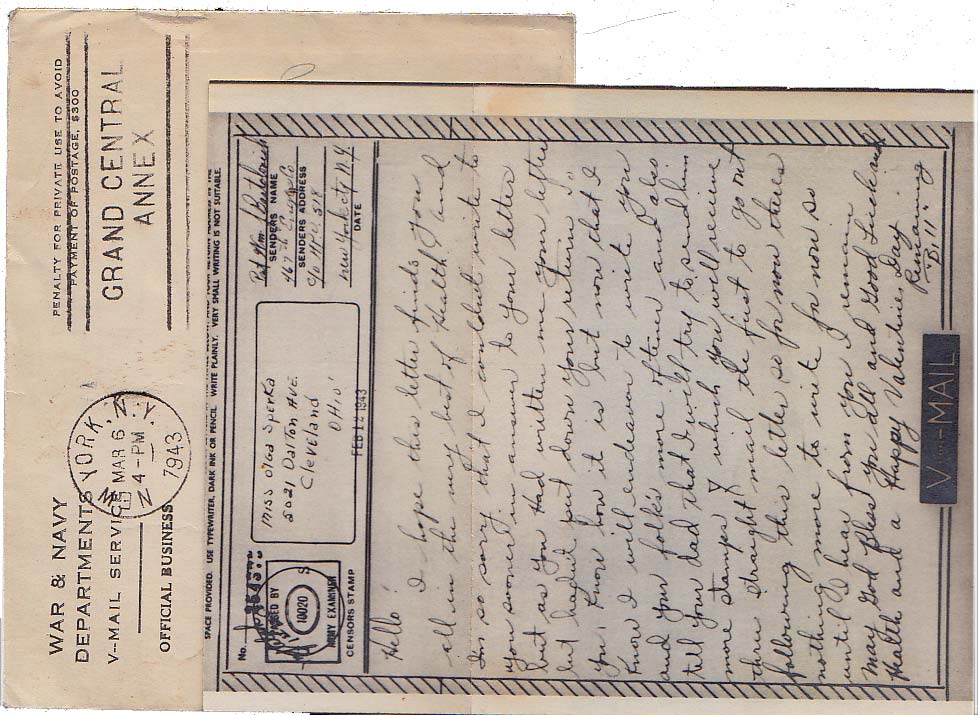 WAR & NAVY
DEPARTMENTS
V-MAIL SERVICE
OFFICIAL BUSINESS
NEW YORK, N.Y.
MAR 6
4-PM
1943
PENALTY FOR PRIVATE USE TO AVOID
PAYMENT OF POSTAGE, $300
GRAND CENTRAL
ANNEX
SPACE PROVIDED. USE TYPEWRITER, DARK INK OR PENCIL. WRITE PLAINLY. VERY SMALL WRITING IS NOT SUITABLE.
No.
PASSED BY
10020
ARMY EXAMINER
CENSORS STAMP
Miss Olga Sperka
5021 Dalton Ave.
Cleveland
Ohio
FEB 12 1943
Pvt Wm
SENDERS NAME
467th
SENDERS ADDRESS
c/o A.P.O. 518
New York City N.Y.
DATE
Hello!
I hope this letter finds you
all in the very best of Health, and
Im so sorry that I couldnt write to
you sooner in answer to your letter
but as you had written me your letter
but hadnt put down your return
you know how it is but now that I
know I will endeavor to write you
and your folk's more oftener and also
tell your dad that I will try to send him
more stamps which you will receive
three straight mail the first to go out
following this letter so for now theres
nothing more to write for now so
until I hear from you I remain
May God Bless you all and Good Luck and
Health and a Happy Valentines Day
Remaining
"Bill"
V···-MAIL